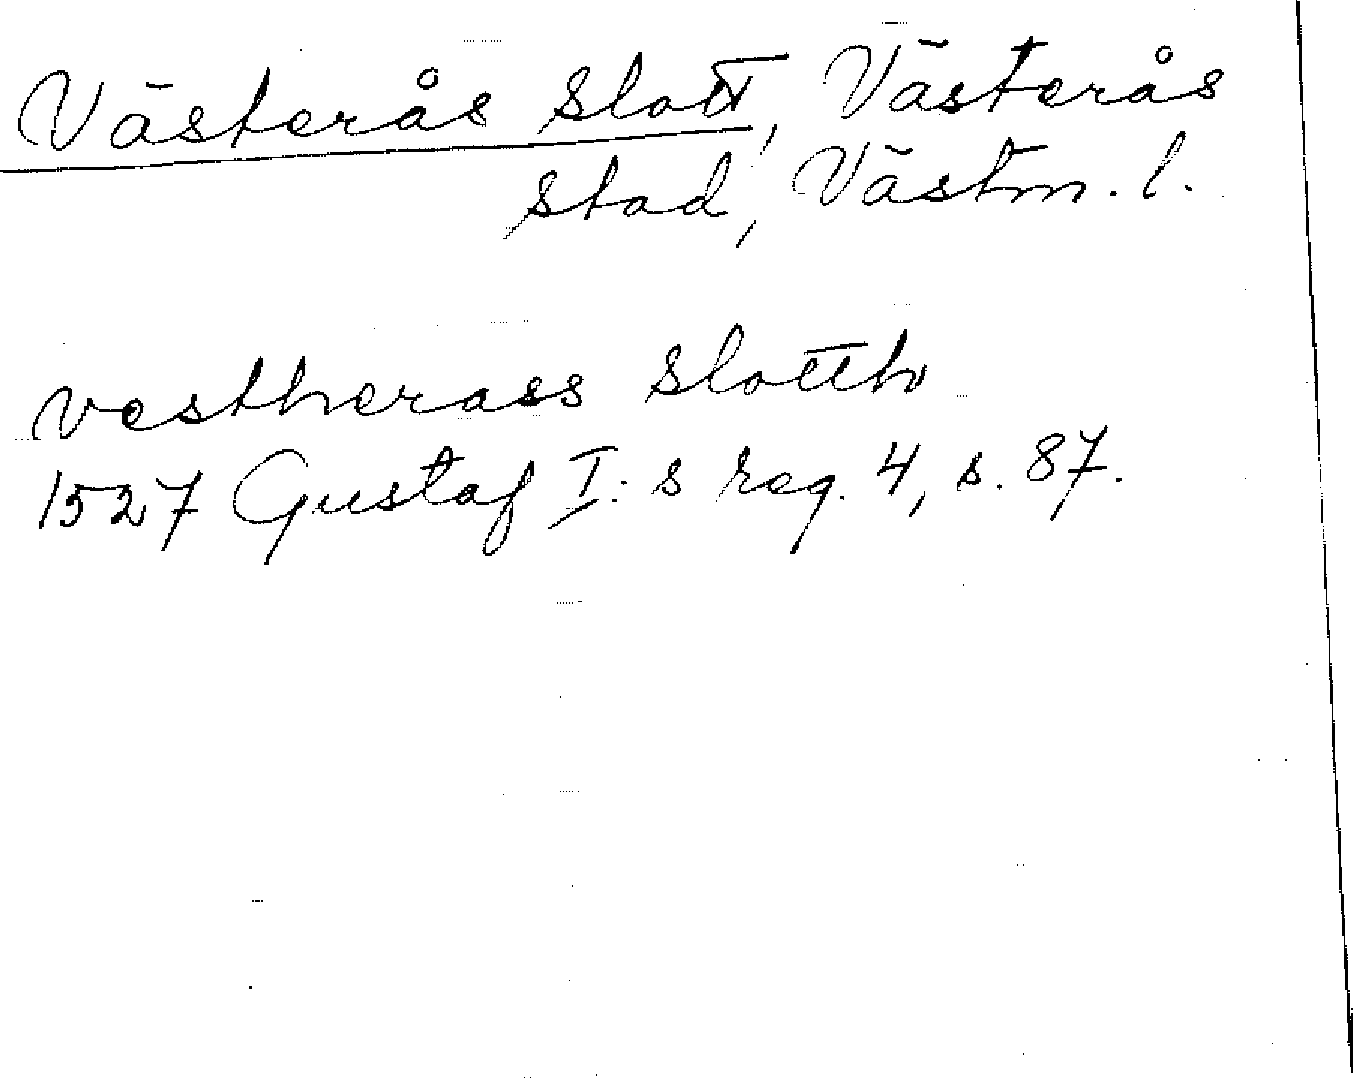 Västerås slott, Västerås
stad, Västm. l.
vestherass slotth
1527 Gustaf I:s reg. 4, s. 87.